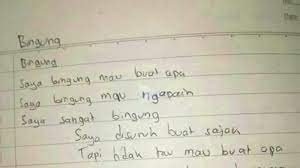 Bingung
Bingung
Saya bingung mau buat apa
Saya bingung mau ngapain
Saya sangat bingung
Saya disuruh buat sajak
Tapi tidak tau mau buat apa